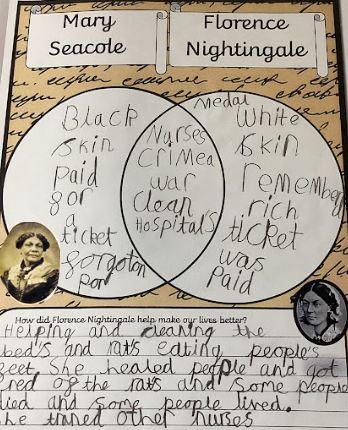 Mary
Seacole
Florence
Nightingale
Black
skin
paid
gor
a
ticket
gorgoton
por
Medal
Nurses
Crimea
war
Clean
Hospitals
White
skin
remember
rich
ticket
was
paid
How did Florence Nightingale help make our lives better?
Helping and cleaning the
bed's and rats eating people's
geet. She healed people and got
red of the rats and some people
died and some people lived.
she traned other nurses